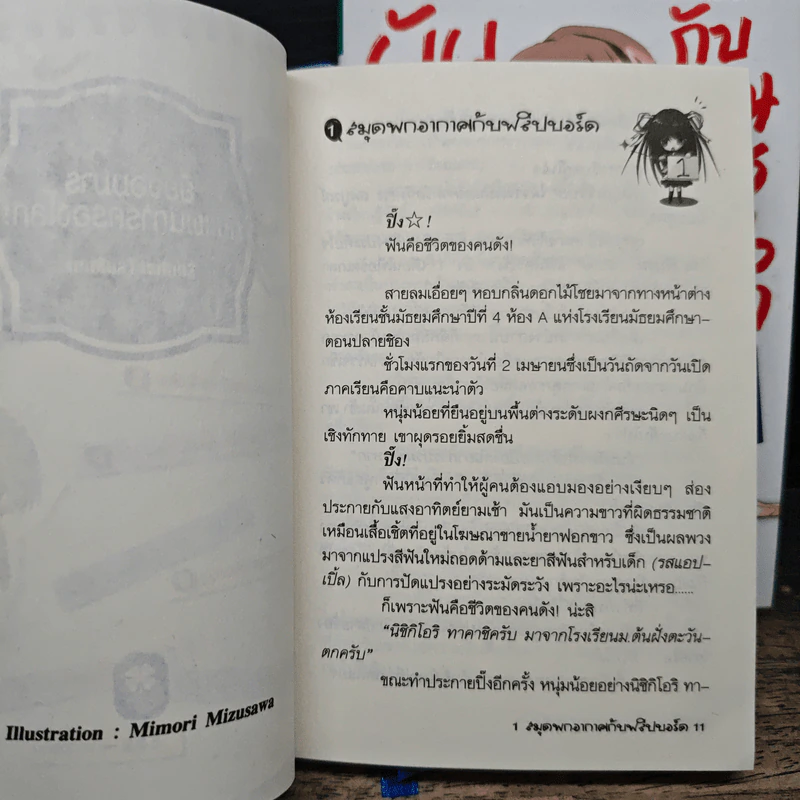 กับ
Illustration : Mimori Mizusawa
1 สมุดพกอากาศกับฟรีปบอร์ด
1
ปิ๊ง☆!
ฟันคือชีวิตของคนดัง!
สายลมเอื่อยๆ หอบกลิ่นดอกไม้โชยมาจากทางหน้าต่าง
ห้องเรียนชั้นมัธยมศึกษาปีที่ 4 ห้อง A แห่งโรงเรียนมัธยมศึกษา-
ตอนปลายชิอง
ชั่วโมงแรกของวันที่ 2 เมษายนซึ่งเป็นวันถัดจากวันเปิด
ภาคเรียนคือคาบแนะนำตัว
หนุ่มน้อยที่ยืนอยู่บนพื้นต่างระดับผงกศีรษะนิดๆ เป็น
เชิงทักทาย เขาผุดรอยยิ้มสดชื่น
ปิ๊ง!
ฟันหน้าที่ทำให้ผู้คนต้องแอบมองอย่างเงียบๆ ส่อง
ประกายกับแสงอาทิตย์ยามเช้า มันเป็นความขาวที่ผิดธรรมชาติ
เหมือนเสื้อเชิ้ตที่อยู่ในโฆษณาขายน้ำยาฟอกขาว ซึ่งเป็นผลพวง
มาจากแปรงสีฟันใหม่ถอดด้ามและยาสีฟันสำหรับเด็ก (รสแอป-
เปิ้ล) กับการปัดแปรงอย่างระมัดระวัง เพราะอะไรน่ะเหรอ......
ก็เพราะฟันคือชีวิตของคนดัง! น่ะสิ
“นิชิกิโอริ ทาคาชิครับ มาจากโรงเรียนม.ต้นฝั่งตะวัน-
ตกครับ”
ขณะทำประกายปิ๊งอีกครั้ง หนุ่มน้อยอย่างนิชิกิโอริ ทา-
1 สมุดพกอากาศกับฟรีปบอร์ด 11